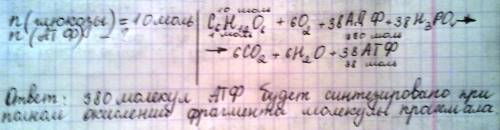 n (глюкозы) = 10 моль
n (АТФ) - ?
10 моль
C₆H₁₂O₆ + 6O₂ + 38АДФ + 38H₃PO₄ →
1 моль 380 моль
→ 6CO₂ + 6H₂O + 38АТФ
38 моль
Ответ: 380 молекул АТФ будет синтезировано при
полном окислении фрагмента молекулы крахмала